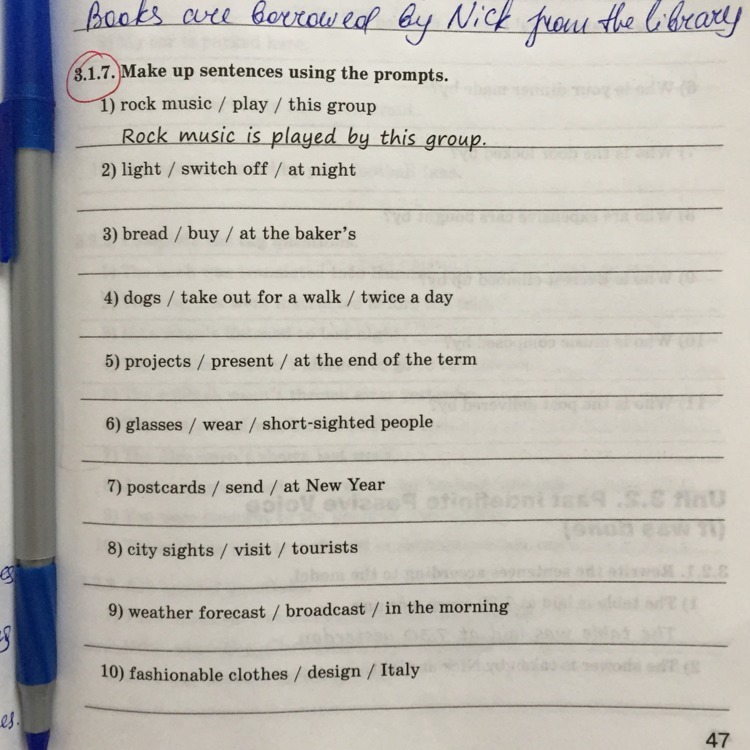 Books are borrowed by Nick from the library
3.1.7. Make up sentences using the prompts.
1) rock music / play / this group
Rock music is played by this group.
2) light / switch off / at night
3) bread / buy / at the baker's
4) dogs / take out for a walk / twice a day
5) projects / present / at the end of the term
6) glasses / wear / short-sighted people
7) postcards / send / at New Year
8) city sights / visit / tourists
9) weather forecast / broadcast / in the morning
10) fashionable clothes / design / Italy
47